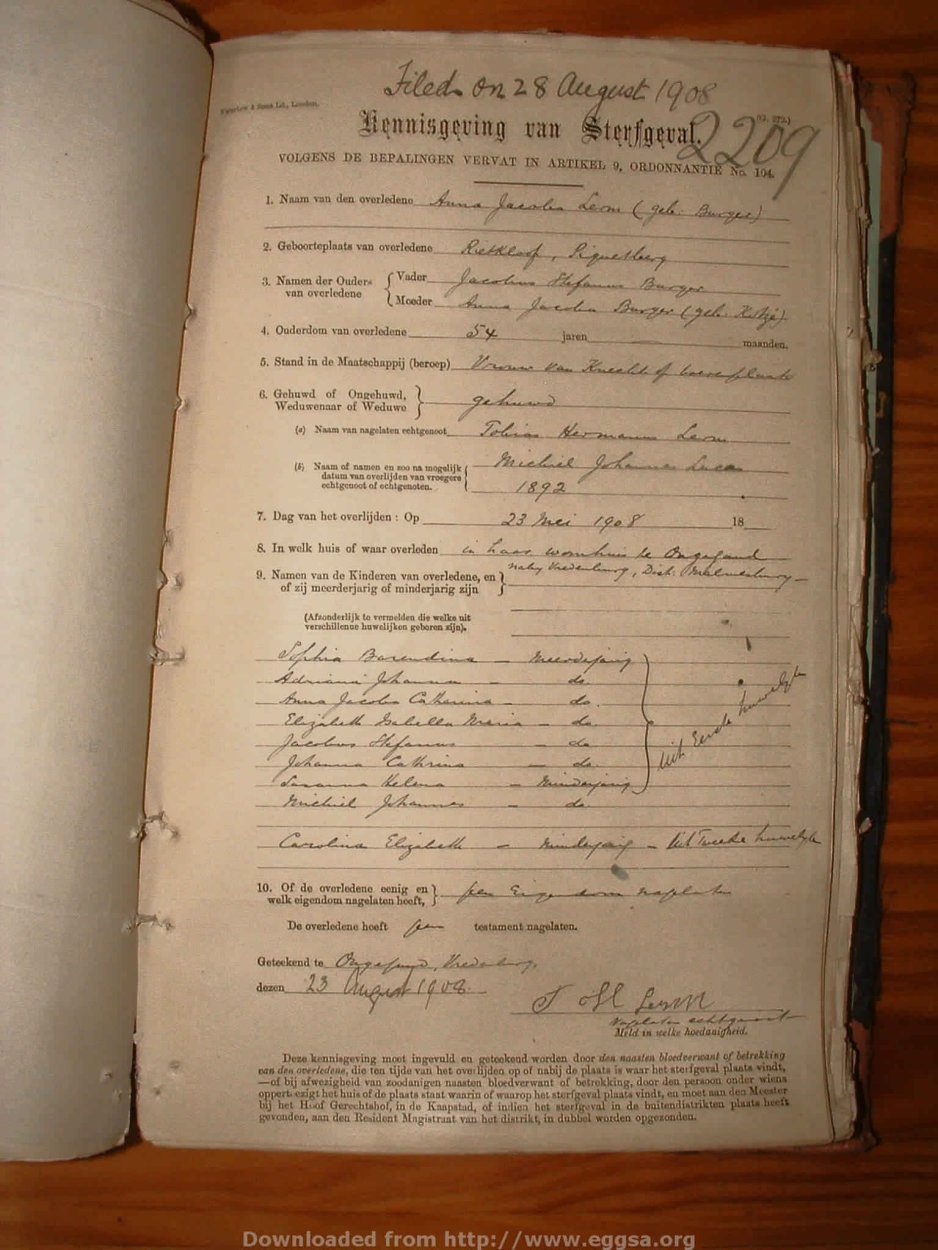 Filed on 28 August 1908
Waterlow & Sons Ld., London.
Kennisgeving van Sterfgeval.
2209
VOLGENS DE BEPALINGEN VERVAT IN ARTIKEL 9, ORDONNANTIE No. 104.
1. Naam van den overledene Anna Jacoba (geb. Burger)
2. Geboorteplaats van overledene Rietkloof, Piquetberg
3. Namen der Ouders van overledene
Vader Jacobus Stefanus Burger
Moeder Anna Jacoba Burger (geb. Kotzé)
4. Ouderdom van overledene 54 jaren — maanden.
5. Stand in de Maatschappij (beroep) Vrouw van Knecht of
6. Gehuwd of Ongehuwd, Weduwenaar of Weduwe
gehuwd
(a) Naam van nagelaten echtgenoot Tobias Hermanus
(b) Naam of namen en zoo na mogelijk datum van overlijden van vroegere echtgenoot of echtgenoten.
Michiel Johannes Lucas
1892
7. Dag van het overlijden : Op 23 Mei 1908 18
8. In welk huis of waar overleden in haar woonhuis te Ongegund
naby Vredenburg, Dist. Malmesbury
9. Namen van de Kinderen van overledene, en of zij meerderjarig of minderjarig zijn
(Afzonderlijk te vermelden die welke uit verschillenue huwelijken geboren zijn).
Sophia Barendina — Meerderjarig
Adriana Johanna — do.
Anna Jacoba Catherina — do.
Elizabeth Isabella Maria — do
Jacobus Stefanus — do
Johanna Cathrina — do.
Susanna Helena — Minderjarig
Michiel Johannes — do
Uit Eerste huwelyk
Carolina Elizabeth — Minderjarig — Uit Tweede huwelyk
10. Of de overledene eenig en welk eigendom nagelaten heeft,
geen Eigendom nagelaten
De overledene heeft geen testament nagelaten.
Geteekend te Ongegund, Vredenburg,
dezen 23 August 1908
T H
Nagelaten echtgenoot
Meld in welke hoedanigheid.
Deze kennisgeving moet ingevuld en geteekend worden door den naasten bloedverwant of betrekking
van den overledene, die ten tijde van het overlijden op of nabij de plaats is waar het sterfgeval plaats vindt,
—of bij afwezigheid van zoodanigen naasten bloedverwant of betrekking, door den persoon onder wiens
oppertoezigt het huis of de plaats staat waarin of waarop het sterfgeval plaats vindt, en moet aan den Meester
bij het Hoof Gerechtshof, in de Kaapstad, of indien het sterfgeval in de buitendistrikten plaats heeft
gevonden, aan den Resident Magistraat van het distrikt, in dubbel worden opgezonden.
Downloaded from http://www.eggsa.org